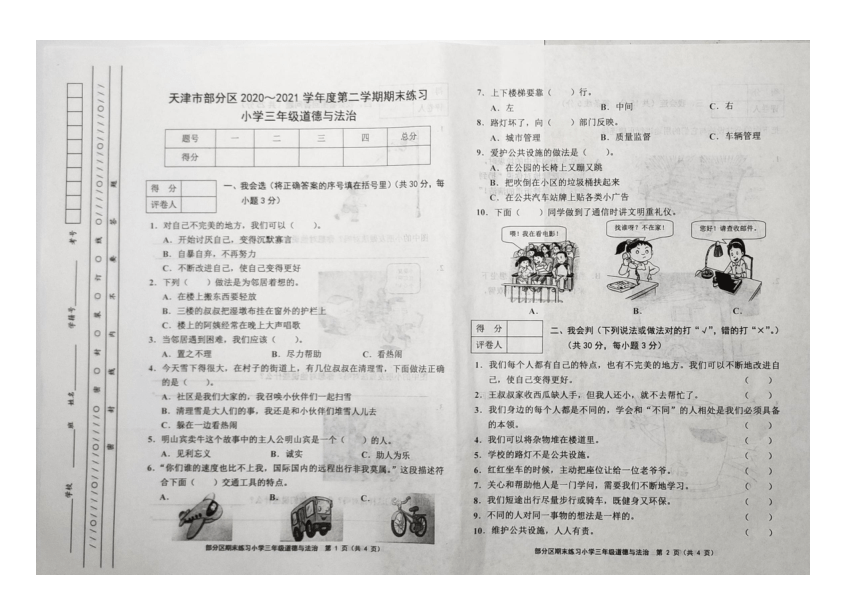 天津市部分区 2020～2021 学年度第二学期期末练习
小学三年级道德与法治
题号 一 二 三 四 总分
得分
得 分
评卷人
一、我会选（将正确答案的序号填在括号里）（共 30 分，每
小题 3 分）
1．对自己不完美的地方，我们可以（ ）。
A．开始讨厌自己，变得沉默寡言
B．自暴自弃，不再努力
C．不断改进自己，使自己变得更好
2．下列（ ）做法是为邻居着想的。
A．在楼上搬东西要轻放
B．三楼的叔叔把湿墩布挂在窗外的护栏上
C．楼上的阿姨经常在晚上大声唱歌
3．当邻居遇到困难，我们应该（ ）。
A．置之不理 B．尽力帮助 C．看热闹
4．今天雪下得很大，在村子的街道上，有几位叔叔在清理雪，下面做法正确
的是（ ）。
A．社区是我们大家的，我召唤小伙伴们一起扫雪
B．清理雪是大人们的事，我还是和小伙伴们堆雪人儿去
C．躲在一边看热闹
5．明山宾卖牛这个故事中的主人公明山宾是一个（ ）的人。
A．见利忘义 B．诚实 C．助人为乐
6．“你们谁的速度也比不上我，国际国内的远程出行非我莫属。”这段描述符
合下面（ ）交通工具的特点。
A． B． C．
部分区期末练习小学三年级道德与法治 第 1 页（共 4 页）
学校
班
姓名
学籍号
考号
密 封 线 内 不 要 答 题
7．上下楼梯要靠（ ）行。
A．左 B．中间 C．右
8．路灯坏了，向（ ）部门反映。
A．城市管理 B．质量监督 C．车辆管理
9．爱护公共设施的做法是（ ）。
A．在公园的长椅上又蹦又跳
B．把吹倒在小区的垃圾桶扶起来
C．在公共汽车站牌上贴各类小广告
10．下面（ ）同学做到了通信时讲文明重礼仪。
喂！我在看电影！
找谁呀？不在家！
您好！请查收邮件。
A． B． C．
得 分
评卷人
二、我会判（下列说法或做法对的打“√”，错的打“×”。）
（共 30 分，每小题 3 分）
1．我们每个人都有自己的特点，也有不完美的地方。我们可以不断地改进自
己，使自己变得更好。 （ ）
2．王叔叔家收西瓜缺人手，但我人还小，就不去帮忙了。 （ ）
3．我们身边的每个人都是不同的，学会和“不同”的人相处是我们必须具备
的本领。 （ ）
4．我们可以将杂物堆在楼道里。 （ ）
5．学校的路灯不是公共设施。 （ ）
6．红红坐车的时候，主动把座位让给一位老爷爷。 （ ）
7．关心和帮助他人是一门学问，需要我们不断地学习。 （ ）
8．我们短途出行尽量步行或骑车，既健身又环保。 （ ）
9．不同的人对同一事物的想法是一样的。 （ ）
10．维护公共设施，人人有责。 （ ）
部分区期末练习小学三年级道德与法治 第 2 页（共 4 页）